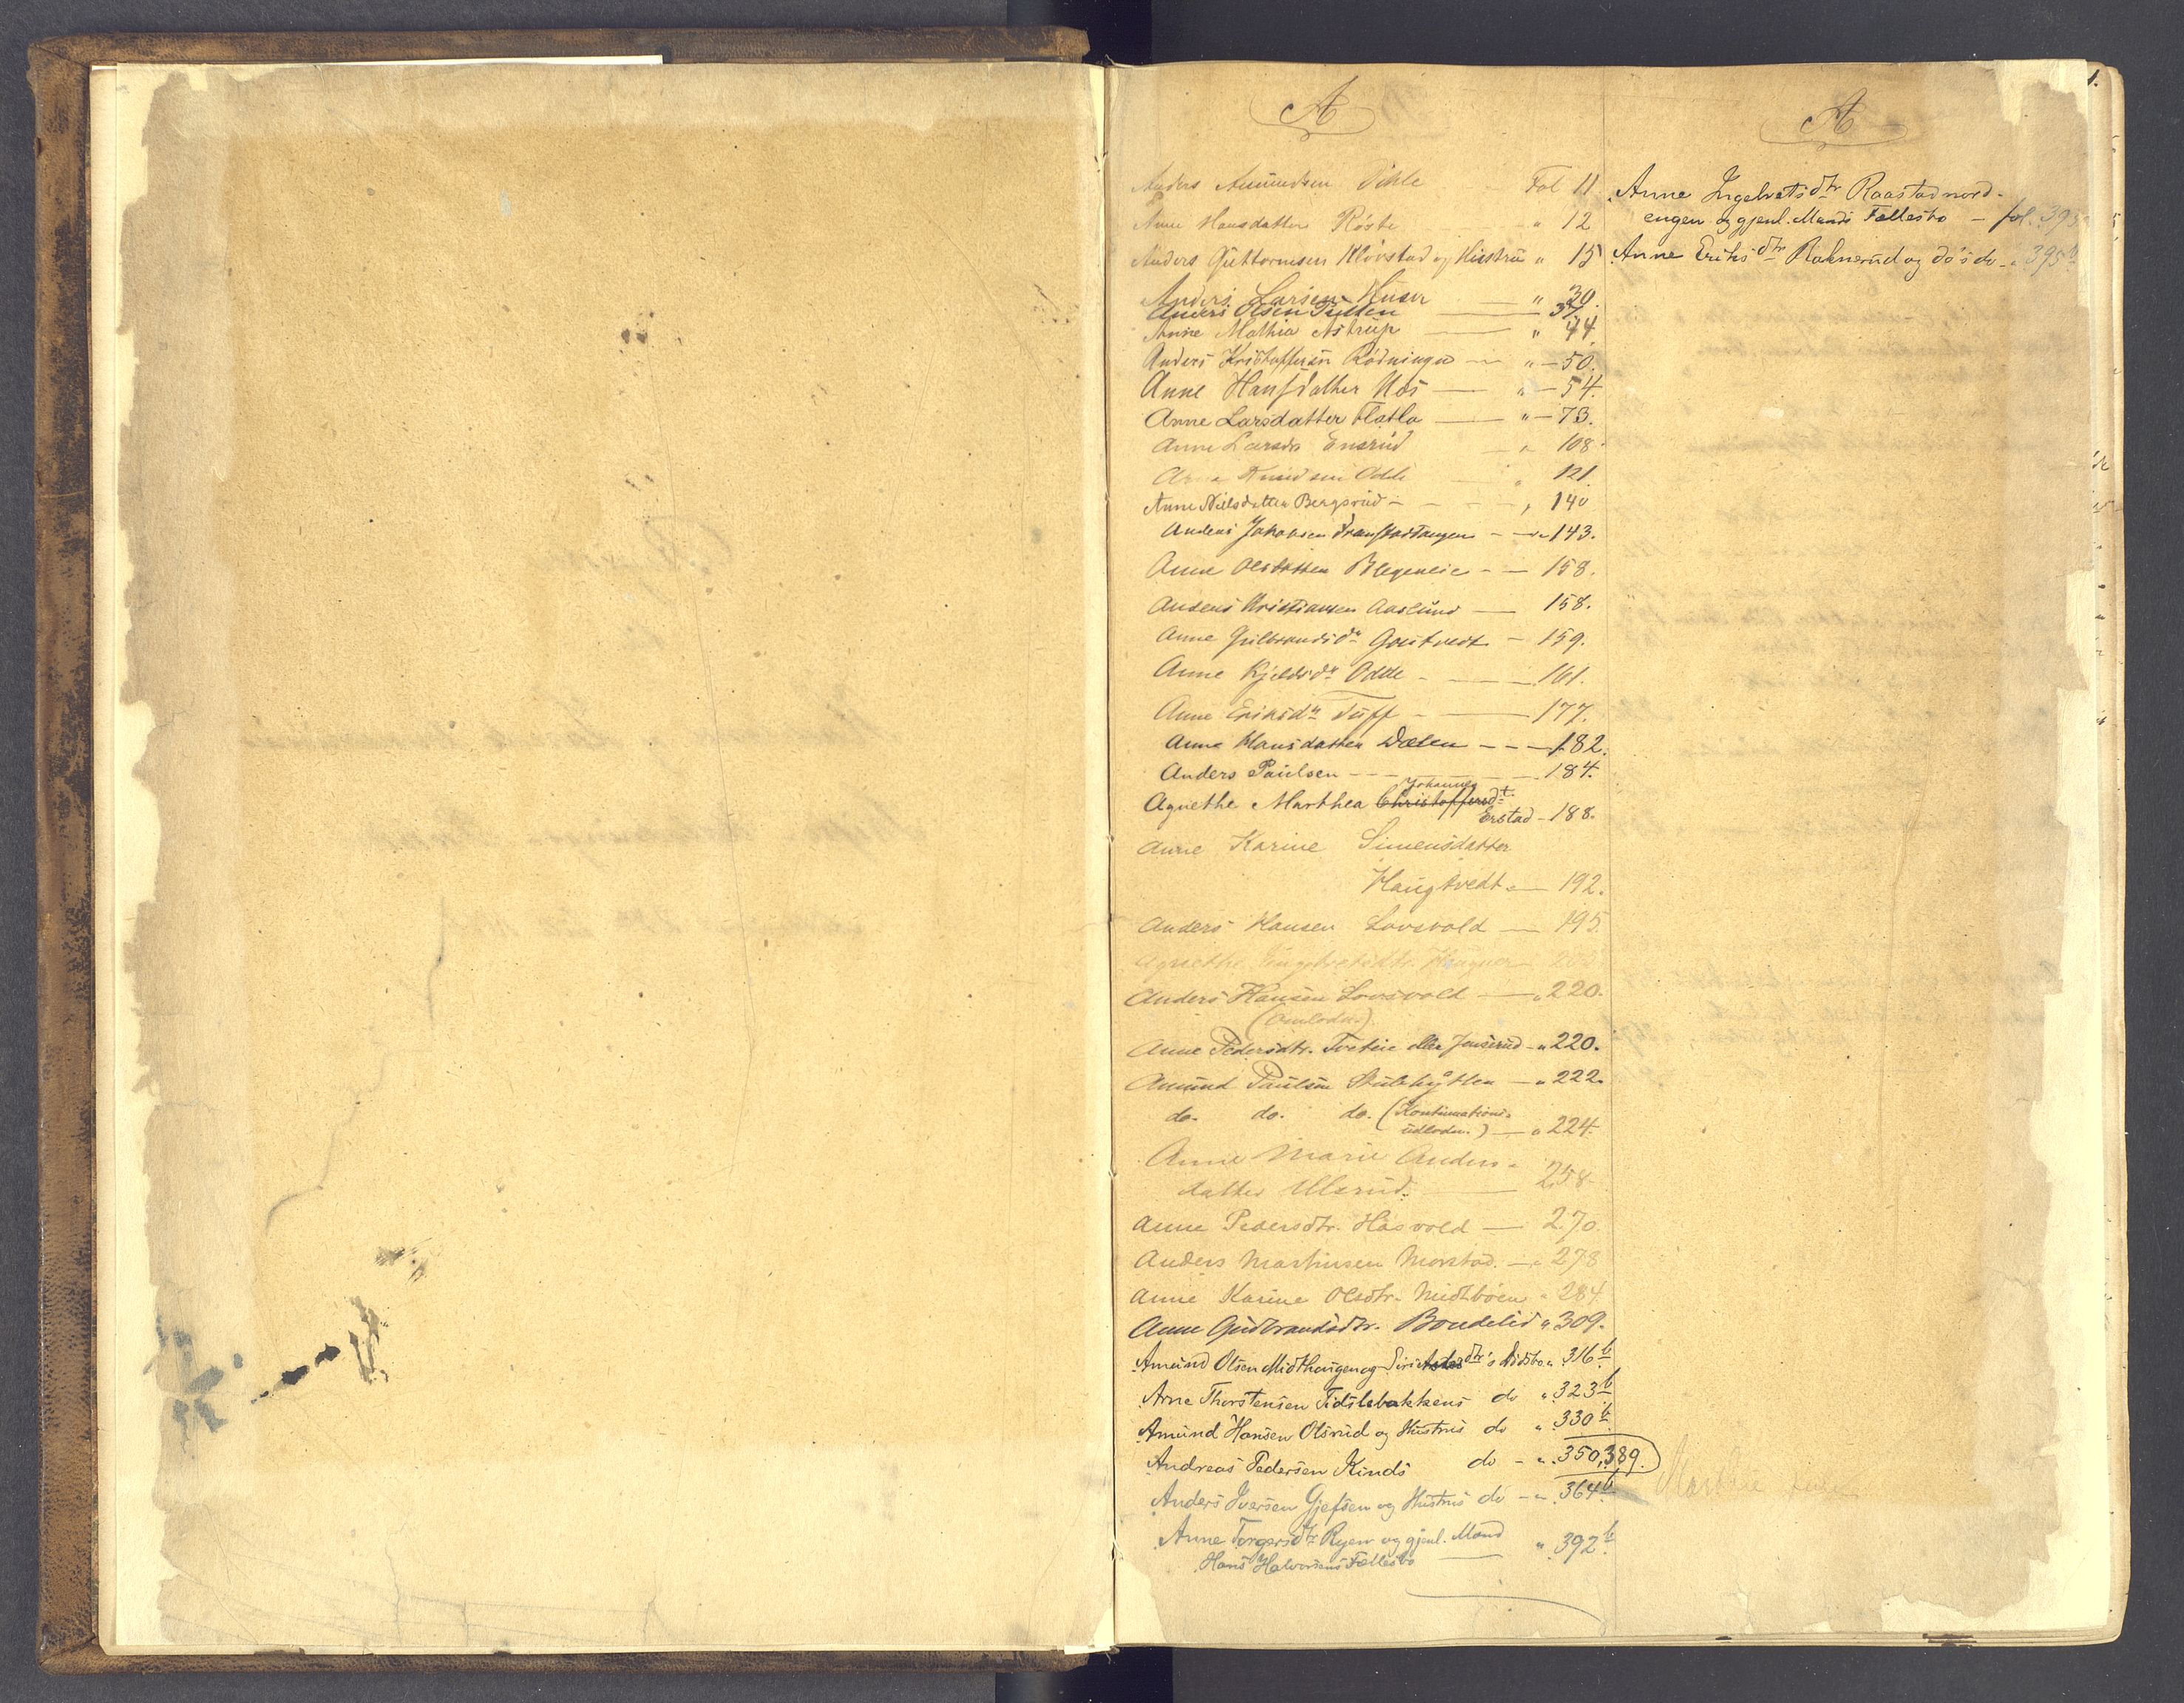 A
Anders Amundsen Vihle Fol 11
Anne Hansdatter Röste " 12
Anders Guttormsen Klövstad og Hustru " 15
Anders Larsen Huser — " 30.
Anders Olsen — 37.
Anne Mathia Astrup — " 44.
Anders Kristoffersen Rödningen — " — 50.
Anne Hansdatter Næs — " — 54.
Anne Larsdatter Flatla — " — 73.
Anne Larsdr Ensrud — " 108.
Knudsen Odde " 121.
Anne Nielsdatter Bergsrud — 140
Anders Jakobsen — " 143.
Anne Olsdatter — 158.
Anders Kristiansen Aaslund — 158.
Anne Gulbrandsdr — 159.
Anne Kjeldsdr Odde — 161.
Anne Eriksdr Tuff — 177.
Anne Hansdatter Dælen — 182.
Anders Paulsen — 184.
Johannes
Agnethe Marthea Christoffersdt.
Erstad — 188.
Anne Karine Simensdatter
Haugtvedt — 192.
Anders Hansen Lovsvold — 195.
Agnethe
Anders Hansen Lovsvold — " 220.
Anne Pedersdtr. Tveteie eller Jensrud — " 220.
Amund Paulsen — " 222.
do. do. do. (Kontinuations-
udlodn.) — " 224.
Anne Marie Anders-
datter Ulsrud. — 258
Anne Pedersdtr. Håsvold — 270.
Anders Mathisen Morstad. — " 278
Anne Karine Olsdtr. Midtböen " 284
Anne Gudbrandsdtr. Bondelid " 309.
Amund Olsen Midthaugen og Siri " 316 b
Arne Thorstensen Tidslebakkens do " 323 b
Amund Hansen Olsrud og Hustrus do " 330 b
Andreas Pedersen Kinds do — " 350, 389.
Anders Iversen Gjefsen og Hustrus do — " 364 b
Anne Torgersdtr Ryen og gjenl. Mand
Hans Halvorsens Fællesbo — " 392 b
A
Anne Ingebretsdtr Raastad nord-
engen og gjenl. Mands Fællesbo — fol. 393
Anne Eriksdtr Raknerud og do's do — " 395 b